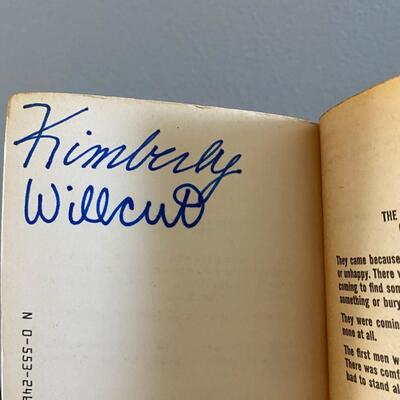 Kimberly
Willcut
N 0-553-246
THE
They came because
or unhappy. There
coming to find som
something or bury
They were comin
none at all.
The first men w
There was comf
had to stand al